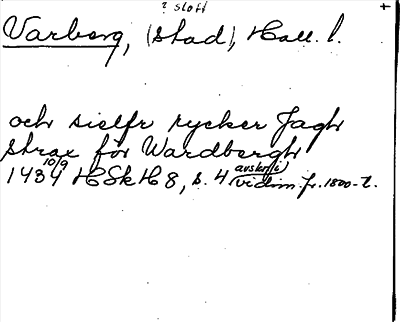 ? slott +
Varberg, (stad), Hall. l.
och sielfr rycker Jagh
strax för Wardbergh
1434 10/9 HSH 8, s. 4 (avskrift i vidim. fr. 1800-t.